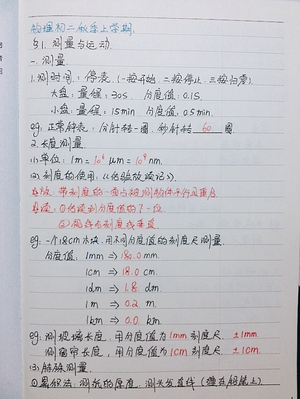 物理初二秋季上学期.
§1. 测量与运动.
一. 测量.
1. 测时间: 停表. (一按开始. 二按停止. 三按归零).
大盘: 量程: 30s 分度值: 0.1s.
小盘: 量程: 15min 分度值: 0.5min.
eg: 正常钟表: 分针转一圈. 秒针转 60 圈.
2. 长度测量.
(1) 单位: 1m = 10⁶ μm = 10⁹ nm.
(2) 刻度的使用:
放: 带刻度的一面与被测物体平行且重合
读: ① 估读到分度值的下一位.
② 视线与刻度线垂直.
eg. 一个18cm木块. 用不同分度值的刻度尺测量.
分度值: 1mm ⇒ 180.0 mm.
1cm ⇒ 18.0 cm.
1dm ⇒ 1.8 dm.
1m ⇒ 0.2 m.
1km ⇒ 0.0 km.
eg: 测玻璃长度. 用分度值为 1mm 刻度尺. ±1mm.
测窗帘长度. 用分度值为 1cm 刻度尺. ±1cm.
(3) 特殊测量.
① 累积法: 测纸的厚度. 测头发直径 (缠在铅笔上)